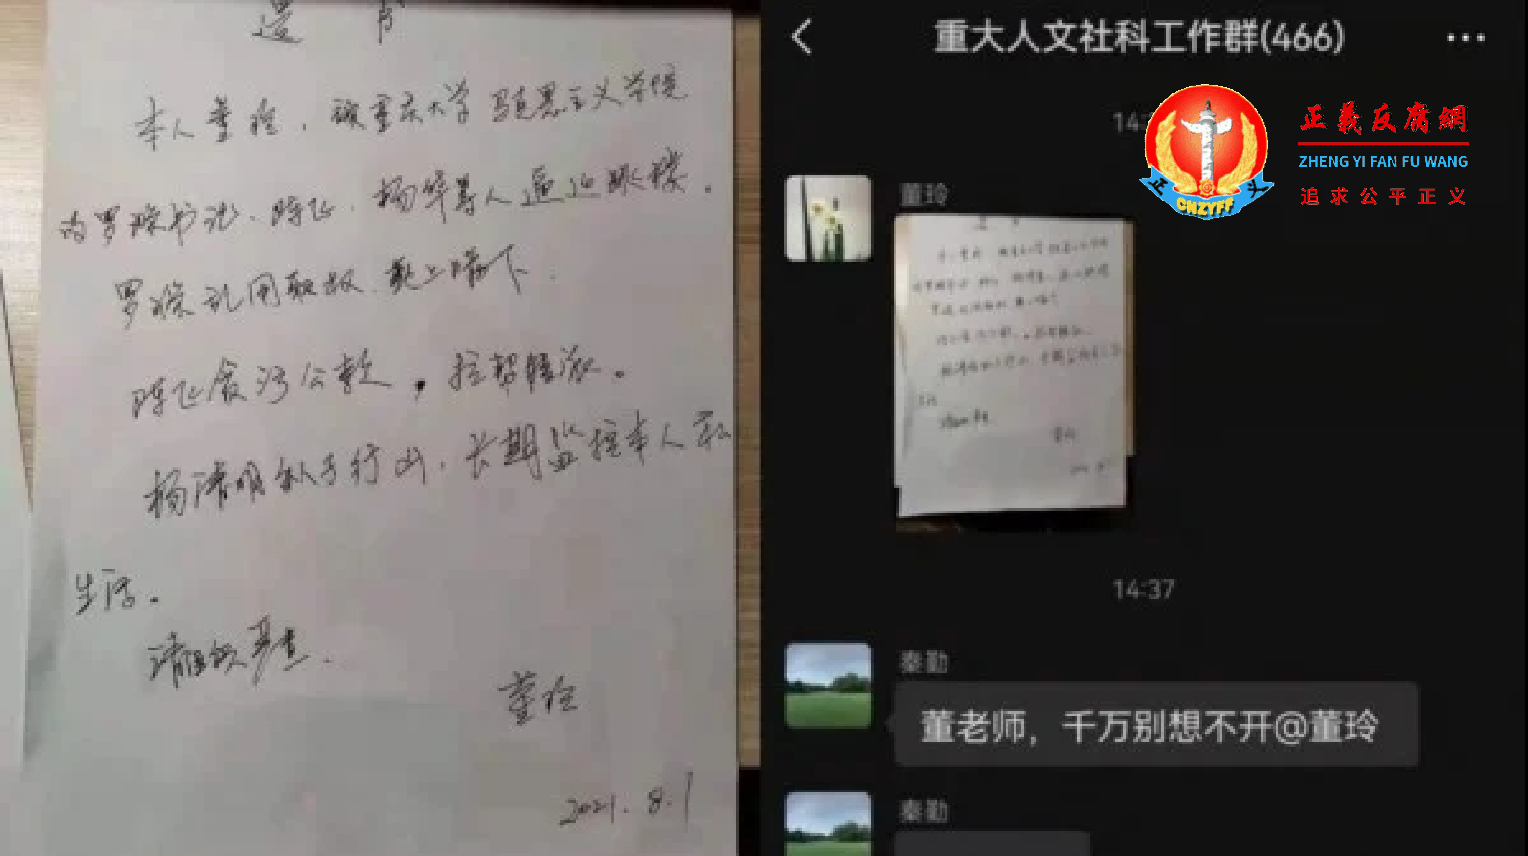 遗书
本人董玲，被重庆大学马克思主义学院
的罗
书记、陈飞、杨华等人逼迫跳楼。
罗
乱用职权、欺上瞒下．
陈飞贪污公款，拉帮结派。
杨清明
行凶．长期监控本人私
生活。
董玲
2021.8.1
重大人文社科工作群(466)
正義反腐網
ZHENG YI FAN FU WANG
追求公平正义
正义
CNZYFF
董玲
14:37
秦勤
董老师，千万别想不开@董玲
秦勤